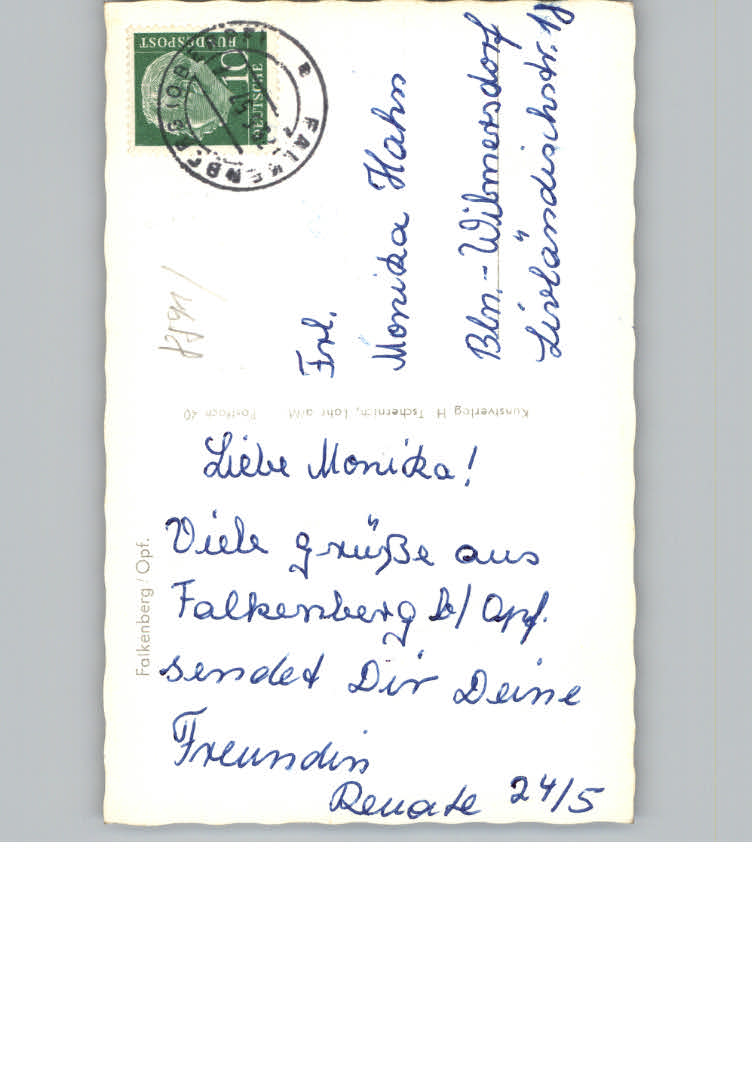 Liebe Monika!
Viele grüße aus
Falkenberg b/ Opf.
sendet Dir Deine
Freundin
Renate 24/5
Frl.
Monika Hahn
Bln.-Wilmersdorf
Livländischstr. 18
Falkenberg / Opf.
Kunstverlag H. Tschernich, Lohr a/M
Postfach 40
DEUTSCHE
BUNDESPOST
10
FALKENBERG